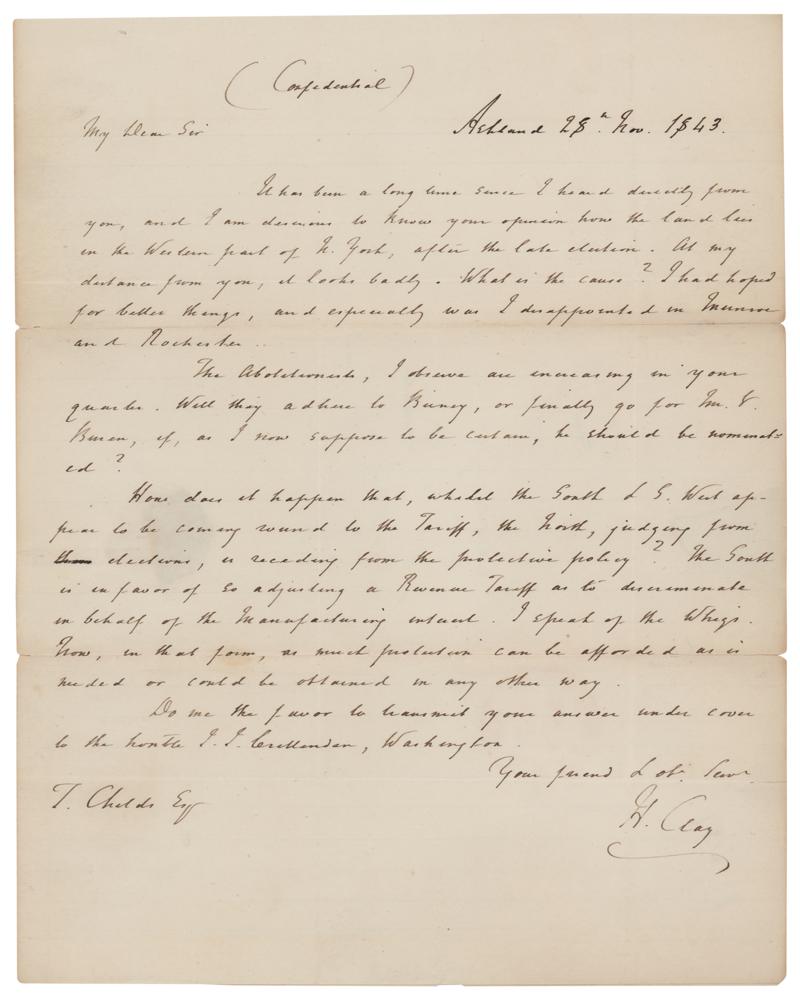 (Confidential)
My Dear Sir
Ashland 28h. Nov. 1843.
It has been a long time since I heard directly from
you, and I am desirous to know your opinion how the land lies
in the Western part of N. York, after the late election. At my
distance from you, it looks badly. What is the cause? I had hoped
for better things, and especially was I disappointed in Munroe
and Rochester..
The Abolitionists, I observe are increasing in your
quarter. Will they adhere to Birney, or finally go for Mr. V.
Buren, if, as I now suppose to be certain, he should be nominat-
ed?
How does it happen that, whilst the South & S. West ap-
pear to be coming round to the Tariff, the North, judging from
elections, is receding from the protective policy? The South
is in favor of so adjusting a Revenue Tariff as to discriminate
in behalf of the Manufacturing interest. I speak of the Whigs.
Now, in that form, as much protection can be afforded as is
needed or could be obtained in any other way.
Do me the favor to transmit your answer under cover
to the honble J. J. Crittenden, Washington.
Your friend & ob. Serv.
T. Childs Esq
H. Clay